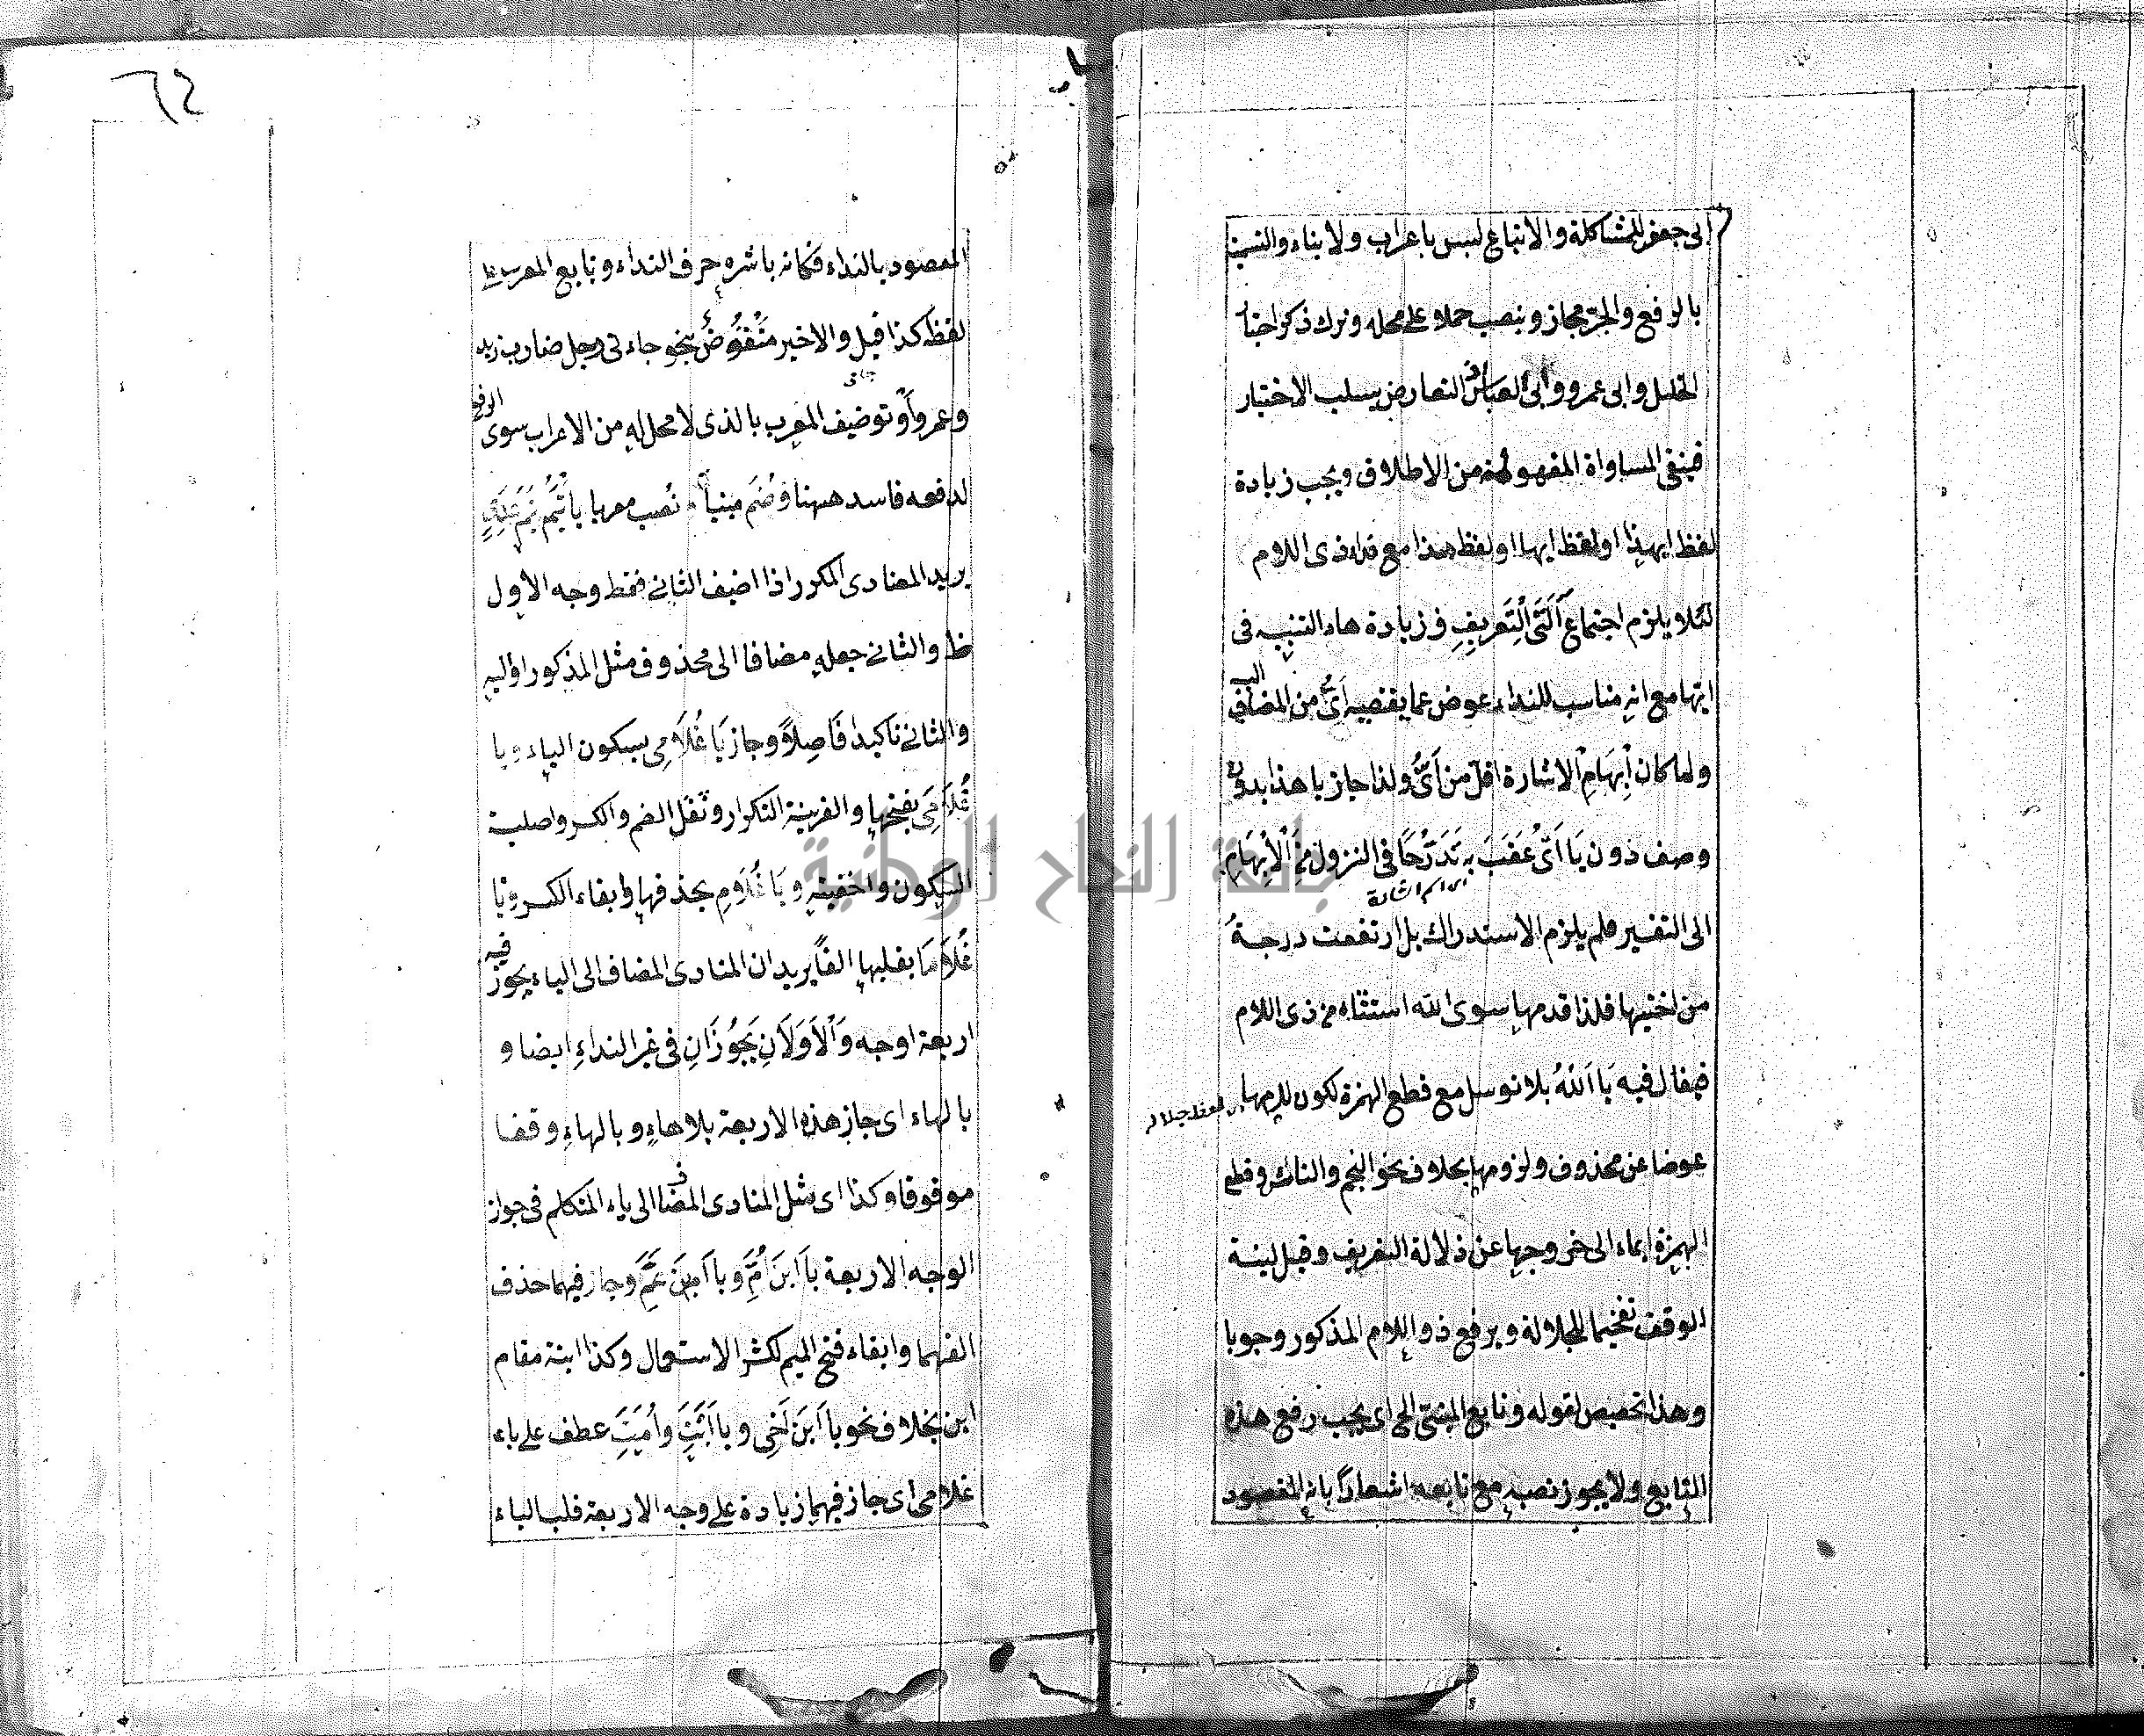 ابى جعفر للمشاكلة والاتباع ليس باعراب ولا بناء والتسمية
بالرفع والجر مجاز وينصب حملا على محله وترك ذكر اختيار
الخليل وابى عمرو وابى العباس اذ التعارض يسلب الاختيار
فينتفى المساواة المفهومة من الاطلاق ويجب زيادة
لفظ ايهذا او لفظ ايها او لفظ هذا مع نداء ذى اللام
لئلا يلزم اجتماع آلَتَىِ التَّعْرِيفِ وزيادة هاء التنبيه فى
ايها مع انه مناسب للنداء عوض عما يقتضيه اَىُّ من المضاف اليه
ولما كان اِبْهَامِ الاشارة اقل من اَىُّ ولذا جاز يا هذا بدون
وصف دون يَا اَىُّ عَقَبَ به تَدَرُّجًا فى النزول مِنَ الْاِبْهَامِ
اى اسم اشارة
الى التفسير فلم يلزم الاستدراك بل ارتفعت درجة
من اختيها فلذا قدمها سوى الله استثناء من ذى اللام
فيقال فيه يَا اَللهُ بلا توسل مع قطع الهمزة لكون لامها
عوضا عن محذوف ولزومها بخلاف نحو النجم والناس وقطع
الهمزة ايماء الى خروجها عن دلالة التعريف وقيل لنية
الوقف تفخيما للجلالة ويرفع ذو اللام المذكور وجوبا
وهذا تخصيص لقوله وتابع المبنى الخ اى يجب رفع هذه
التابع ولا يجوز نصبه مع تابعه اشعارًا بانه المقصود
٦٢
المقصود بالنداء فكانه باشره حرف النداء وتابع المعرب على
لفظه كذا قيل والاخير مَنْقُوضٌ بنحو جاءنى رجل ضارب زيد
وعمروًا وتوصيف المعرب بالذى لا محل له من الاعراب سوى الرفع
لدفعه فاسد ههنا وضُمَّ مبنياً نُصب معربا يا تَيْمُ تَيْمَ عَدِىٍّ
يريد المنادى المكرر اذا اضيف الثانى فقط وجه الاول
ظ والثانى جعله مضافا الى محذوف مثل المذكور او اليه
والثانى تاكيدٌ فَاصِلاً وجاز يَا غُلَامِى بسكون الياء ويا
غُلَامِىَ بفتحها والقرينة التكرار وثقل الضم والكسر واصلية
السكون واخفيته ويَا غُلَامِ بحذفها وابقاء الكسر ويا
غُلَامَا بقلبها الفًا يريد ان المنادى المضاف الى الياء يجوز فيه
اربعة اوجه وَالْاَوَّلَانِ يَجُوزَانِ فى غير النداء ايضا و
بالهاء اى جاز هذه الاربعة بلا هاءٍ وبالهاءِ وقفا
موقوفا وكذا اى مثل المنادى المضاف الى ياء المتكلم فى جواز
الوجه الاربعة يا اَبنَ اُمِّ ويا اَبنَ عَمِّ وجاز فيهما حذف
الفهما وابقاء فتح الميم لكثر الاستعمال وكذا ابنة مقام
ابن بخلاف نحو يا اَبنَ اَخِى ويا اَبَتِ واُمَّتِ عطف على ياء
غلامى اى جاز فيهما زيادة على وجه الاربعة قلب الياء